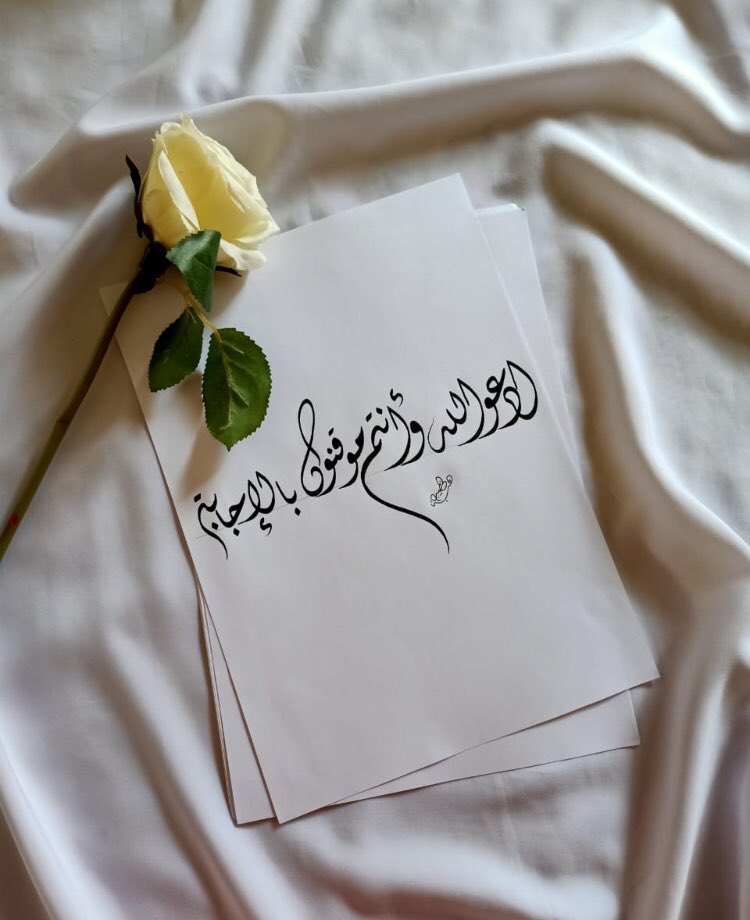 ادعوا الله وأنتم موقنون بالإجابة